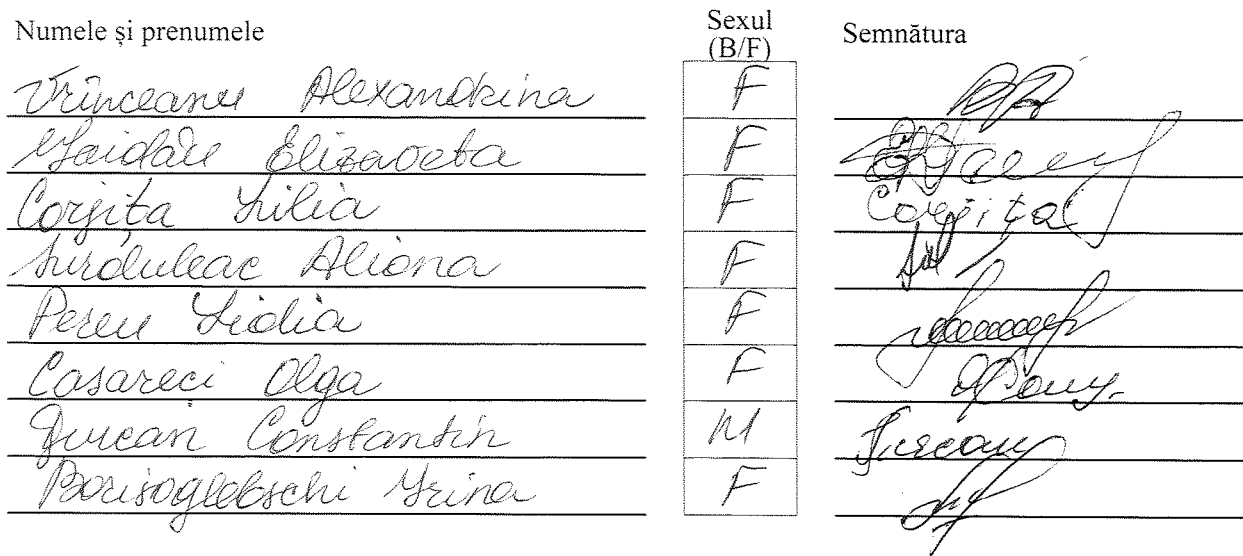 Numele și prenumele Sexul (B/F) Semnătura
Vrînceanu Alexandrina F
Gaidău Elizaveta F
Corjița Lilia F Corjița
Surduleac Aliona F
Pereu Lidia F
Casareci Olga F
Țurcan Constantin M Țurcan
Borisoglebschi Irina F